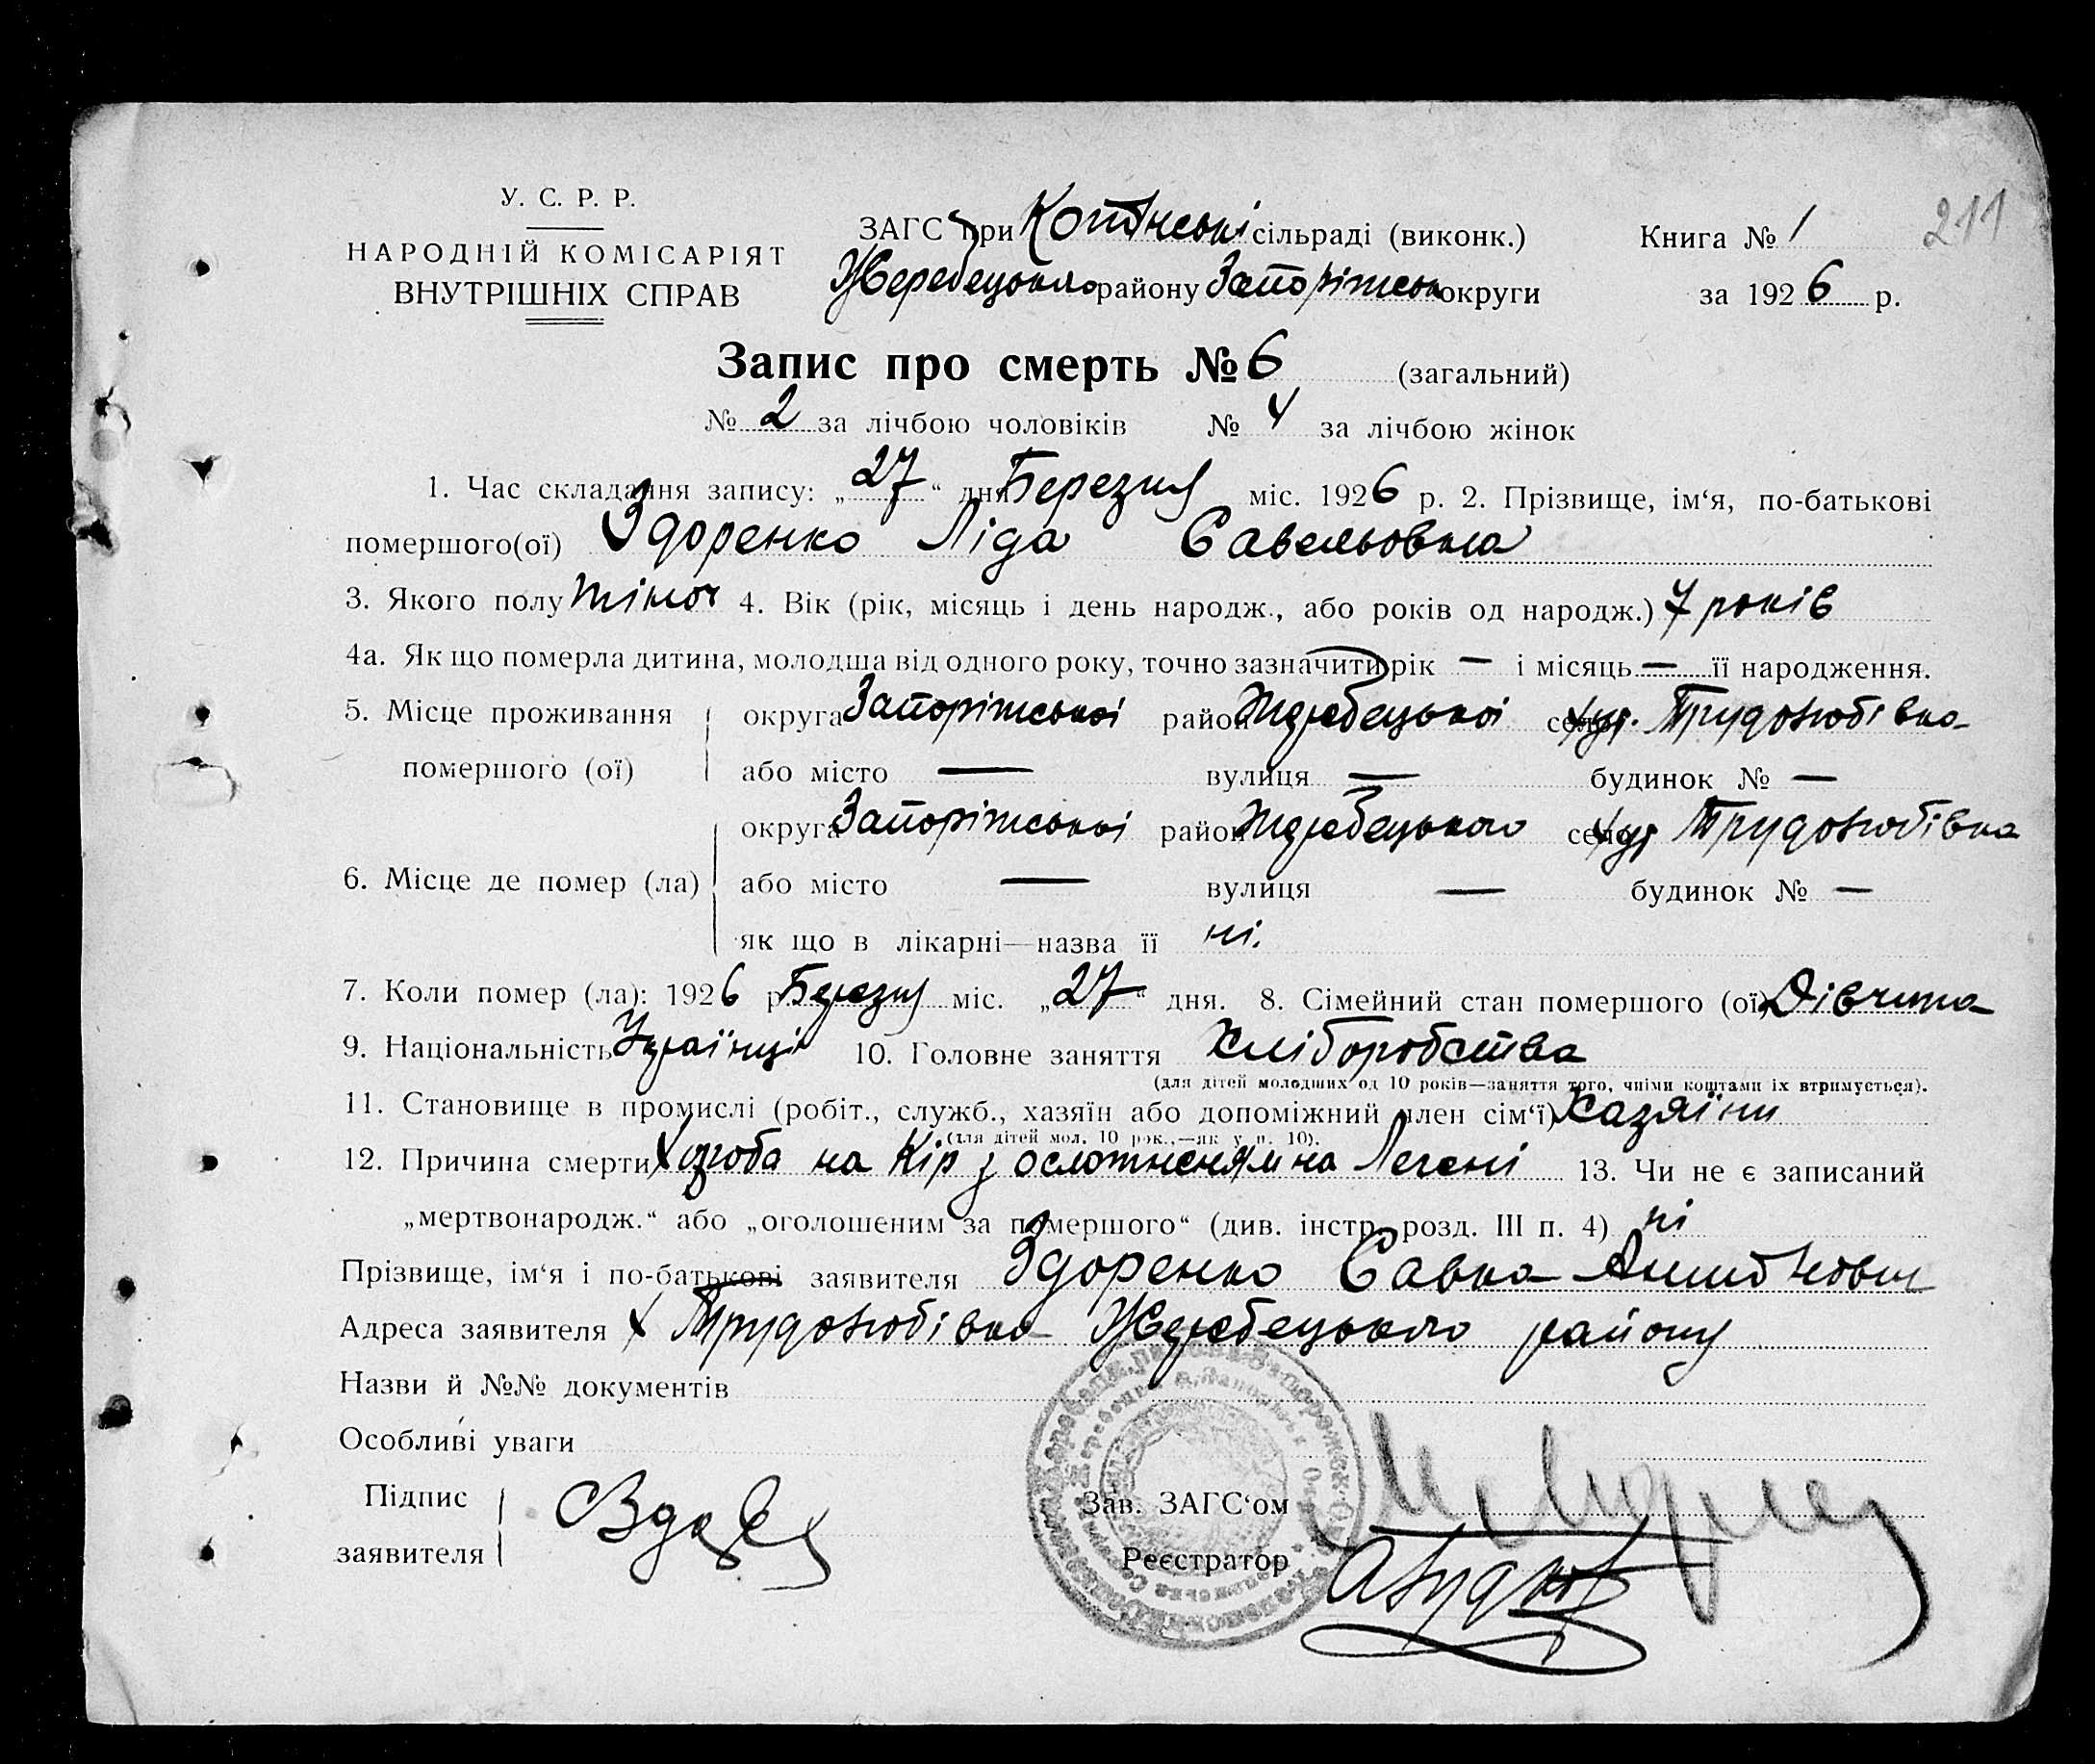 У. С. Р. Р.
НАРОДНІЙ КОМІСАРІЯТ
ВНУТРІШНІХ СПРАВ
ЗАГС при сільраді (виконк.)
Жеребецького району Запоріжськ округи
Книга № 1
211
за 1926 р.
Запис про смерть № 6 (загальний)
№ 2 за лічбою чоловіків № 4 за лічбою жінок
1. Час складання запису: „27“ дня Березня міс. 1926 р. 2. Прізвище, ім‘я, по-батькові
помершого(ої) Здоренко Ліда Савельовна
3. Якого полу жіноч 4. Вік (рік, місяць і день народж., або років од народж.) 7 років
4а. Як що померла дитина, молодша від одного року, точно зазначити рік — і місяць — її народження.
5. Місце проживання
помершого (ої)
округа Запоріжської район Жеребецької село хут. Трудолюбівка
або місто — вулиця — будинок № —
6. Місце де помер (ла)
округа Запоріжської район Жеребецького село хут Трудолюбівка
або місто — вулиця — будинок № —
як що в лікарні—назва її ні.
7. Коли помер (ла): 1926 р. Березня міс. „27“ дня. 8. Сімейний стан помершого (ої) Дівчина
9. Національність Українці 10. Головне заняття Хліборобства
(для дітей молодших од 10 років—заняття того, чиїми коштами їх втримується).
11. Становище в промислі (робіт., служб., хазяїн або допоміжний член сім‘ї) Хазяїни
(для дітей мол. 10 рок.,—як у п. 10).
12. Причина смерти Хороба на Кір з осложненям на Легені 13. Чи не є записаний
„мертвонародж.“ або „оголошеним за помершого“ (див. інстр. розд. III п. 4) ні
Прізвище, ім‘я і по-батькові заявителя Здоренко Савка
Адреса заявителя х Трудолюбівка Жеребецького району
Назви й №№ документів
Особливі уваги
Підпис
заявителя
Зав. ЗАГС‘ом
Реєстратор